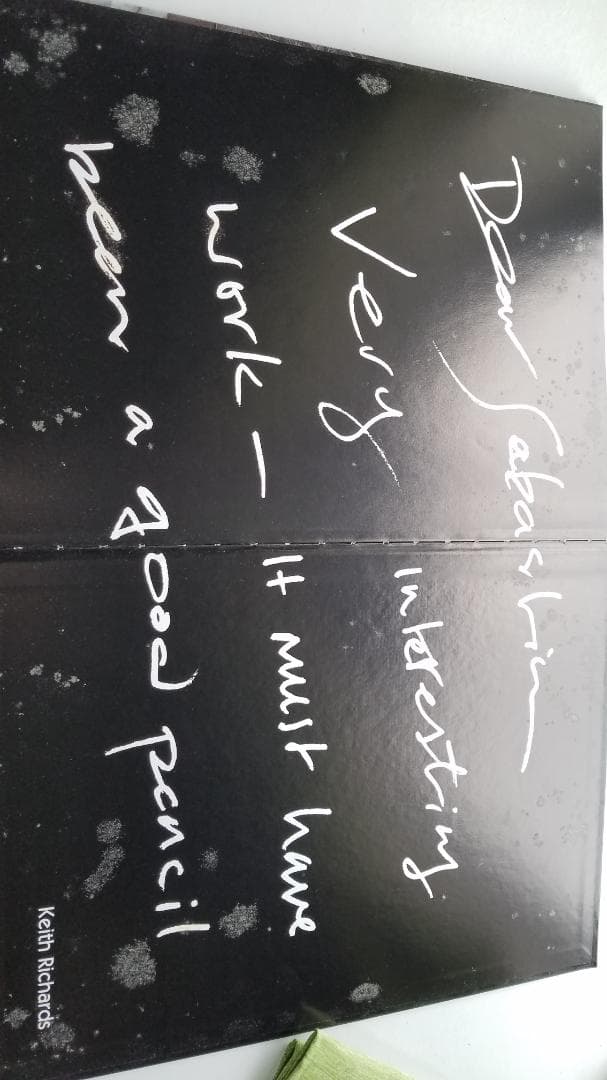 Dear Sabastian
Very Interesting
work – It must have
been a good pencil
Keith Richards